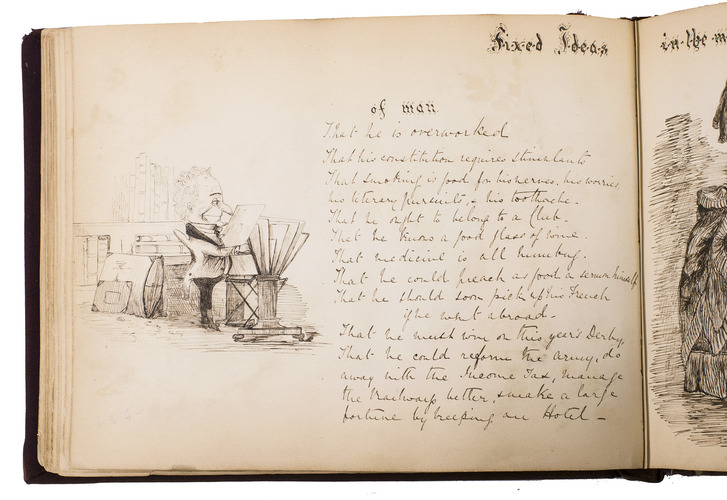 Fixed Ideas
in the m
of man
That he is overworked
That his constitution requires stimulants
That smoking is good for his nerves, his worries,
his literary pursuits, & his toothache.
That he ought to belong to a Club.
That he knows a good glass of wine
That medicine is all humbug.
That he could preach as good a sermon himself
That he should soon pick up his French
if he went abroad.
That he must win on this year's Derby,
That he could reform the army, do
away with the Income Tax, manage
the Railways better, & make a large
fortune by keeping an Hotel —